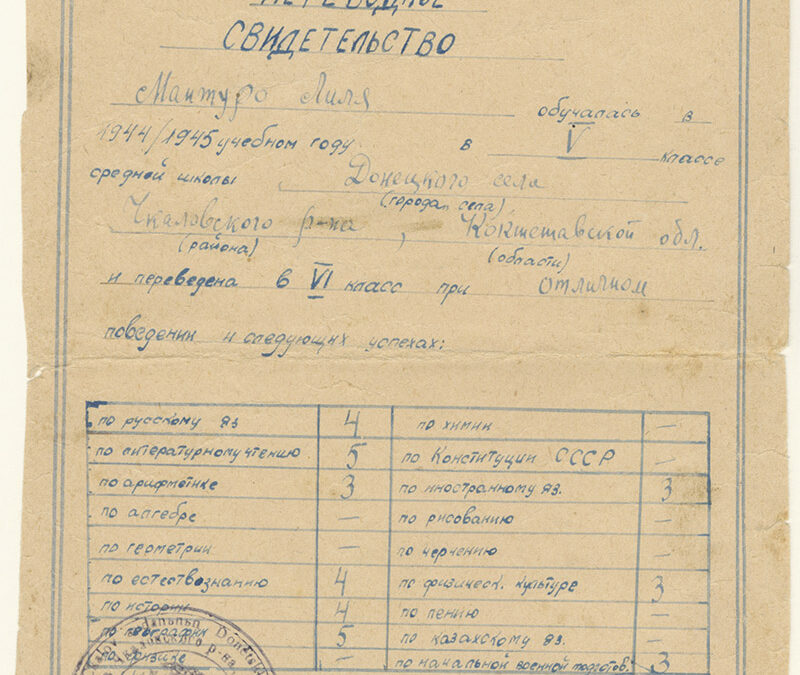 ПЕРЕВОДНОЕ
СВИДЕТЕЛЬСТВО
Мантуро Лиля обучалась в
1944/1945 учебном году в V классе
средней школы Донецкого села
(города, села)
Чкаловского р-на, Кокшетавской обл.
(района) (области)
и переведена в VI класс при отличном
поведении и следующих успехах:
по русскому яз 4 по химии —
по литературному чтению 5 по Конституции СССР —
по арифметике 3 по иностранному яз. 3
по алгебре — по рисованию —
по геометрии — по черчению —
по естествознанию 4 по физическ. культуре 3
по истории 4 по пению —
по географии 5 по казахскому яз. —
по физике — по начальной военной подготов. 3